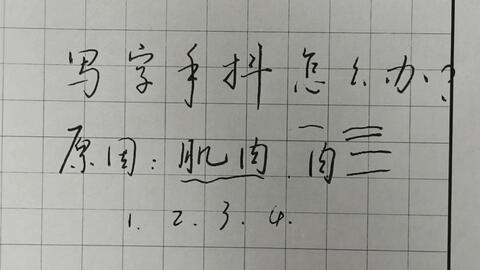 写字手抖怎么办?
原因:肌肉 肉
1. 2. 3. 4.